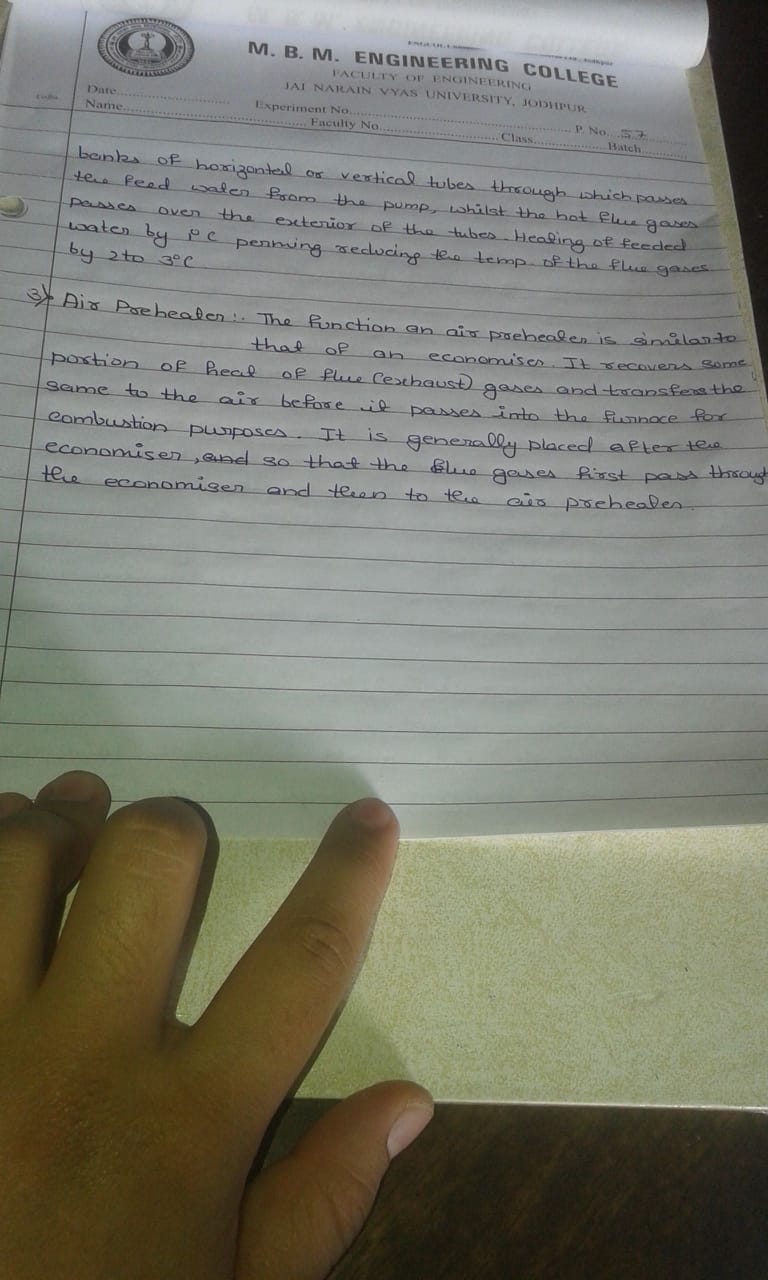 M. B. M. ENGINEERING COLLEGE
FACULTY OF ENGINEERING
JAI NARAIN VYAS UNIVERSITY, JODHPUR
Date.............................. Experiment No.................................................... P. No....57
Name.................................................. Faculty No............................Class.................Batch...........
banks of horizontal or vertical tubes through which passes
the feed water from the pump, whilst the hot flue gases
passes over the exterior of the tubes. Heating of feeded
water by 1°C perming reducing the temp. of the flue gases
by 2 to 3°C
3) Air Preheater:. The function an air preheater is similar to
that of an economiser. It recovers some
portion of heat of flue (exchaust) gases and transfers the
same to the air before it passes into the furnace for
combustion purposes. It is generally placed after the
economiser, and so that the flue gases first pass through
the economiser and then to the air preheater.